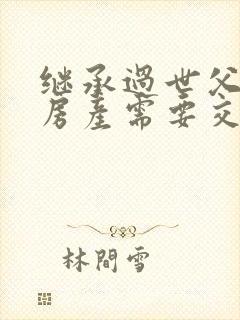 继承過世父
房產需要交
林間雪